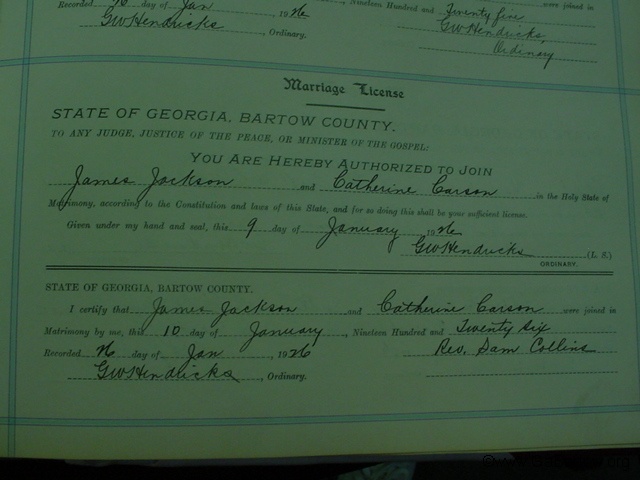 Recorded day of Jan 1926, Nineteen Hundred and Twenty five were joined in
GWHendricks, Ordinary. GWHendricks
Ordinary
Marriage License
STATE OF GEORGIA, BARTOW COUNTY.
TO ANY JUDGE, JUSTICE OF THE PEACE, OR MINISTER OF THE GOSPEL:
YOU ARE HEREBY AUTHORIZED TO JOIN
James Jackson and Catherine Carson in the Holy State of
Matrimony, according to the Constitution and laws of this State, and for so doing this shall be your sufficient license.
Given under my hand and seal, this 9 day of January 1926
GWHendricks (L. S.)
ORDINARY.
STATE OF GEORGIA, BARTOW COUNTY.
I certify that James Jackson and Catherine Carson were joined in
Matrimony by me, this 10 day of January, Nineteen Hundred and Twenty Six
Recorded 26 day of Jan 1926 Rev. Sam Collins
GWHendricks, Ordinary.